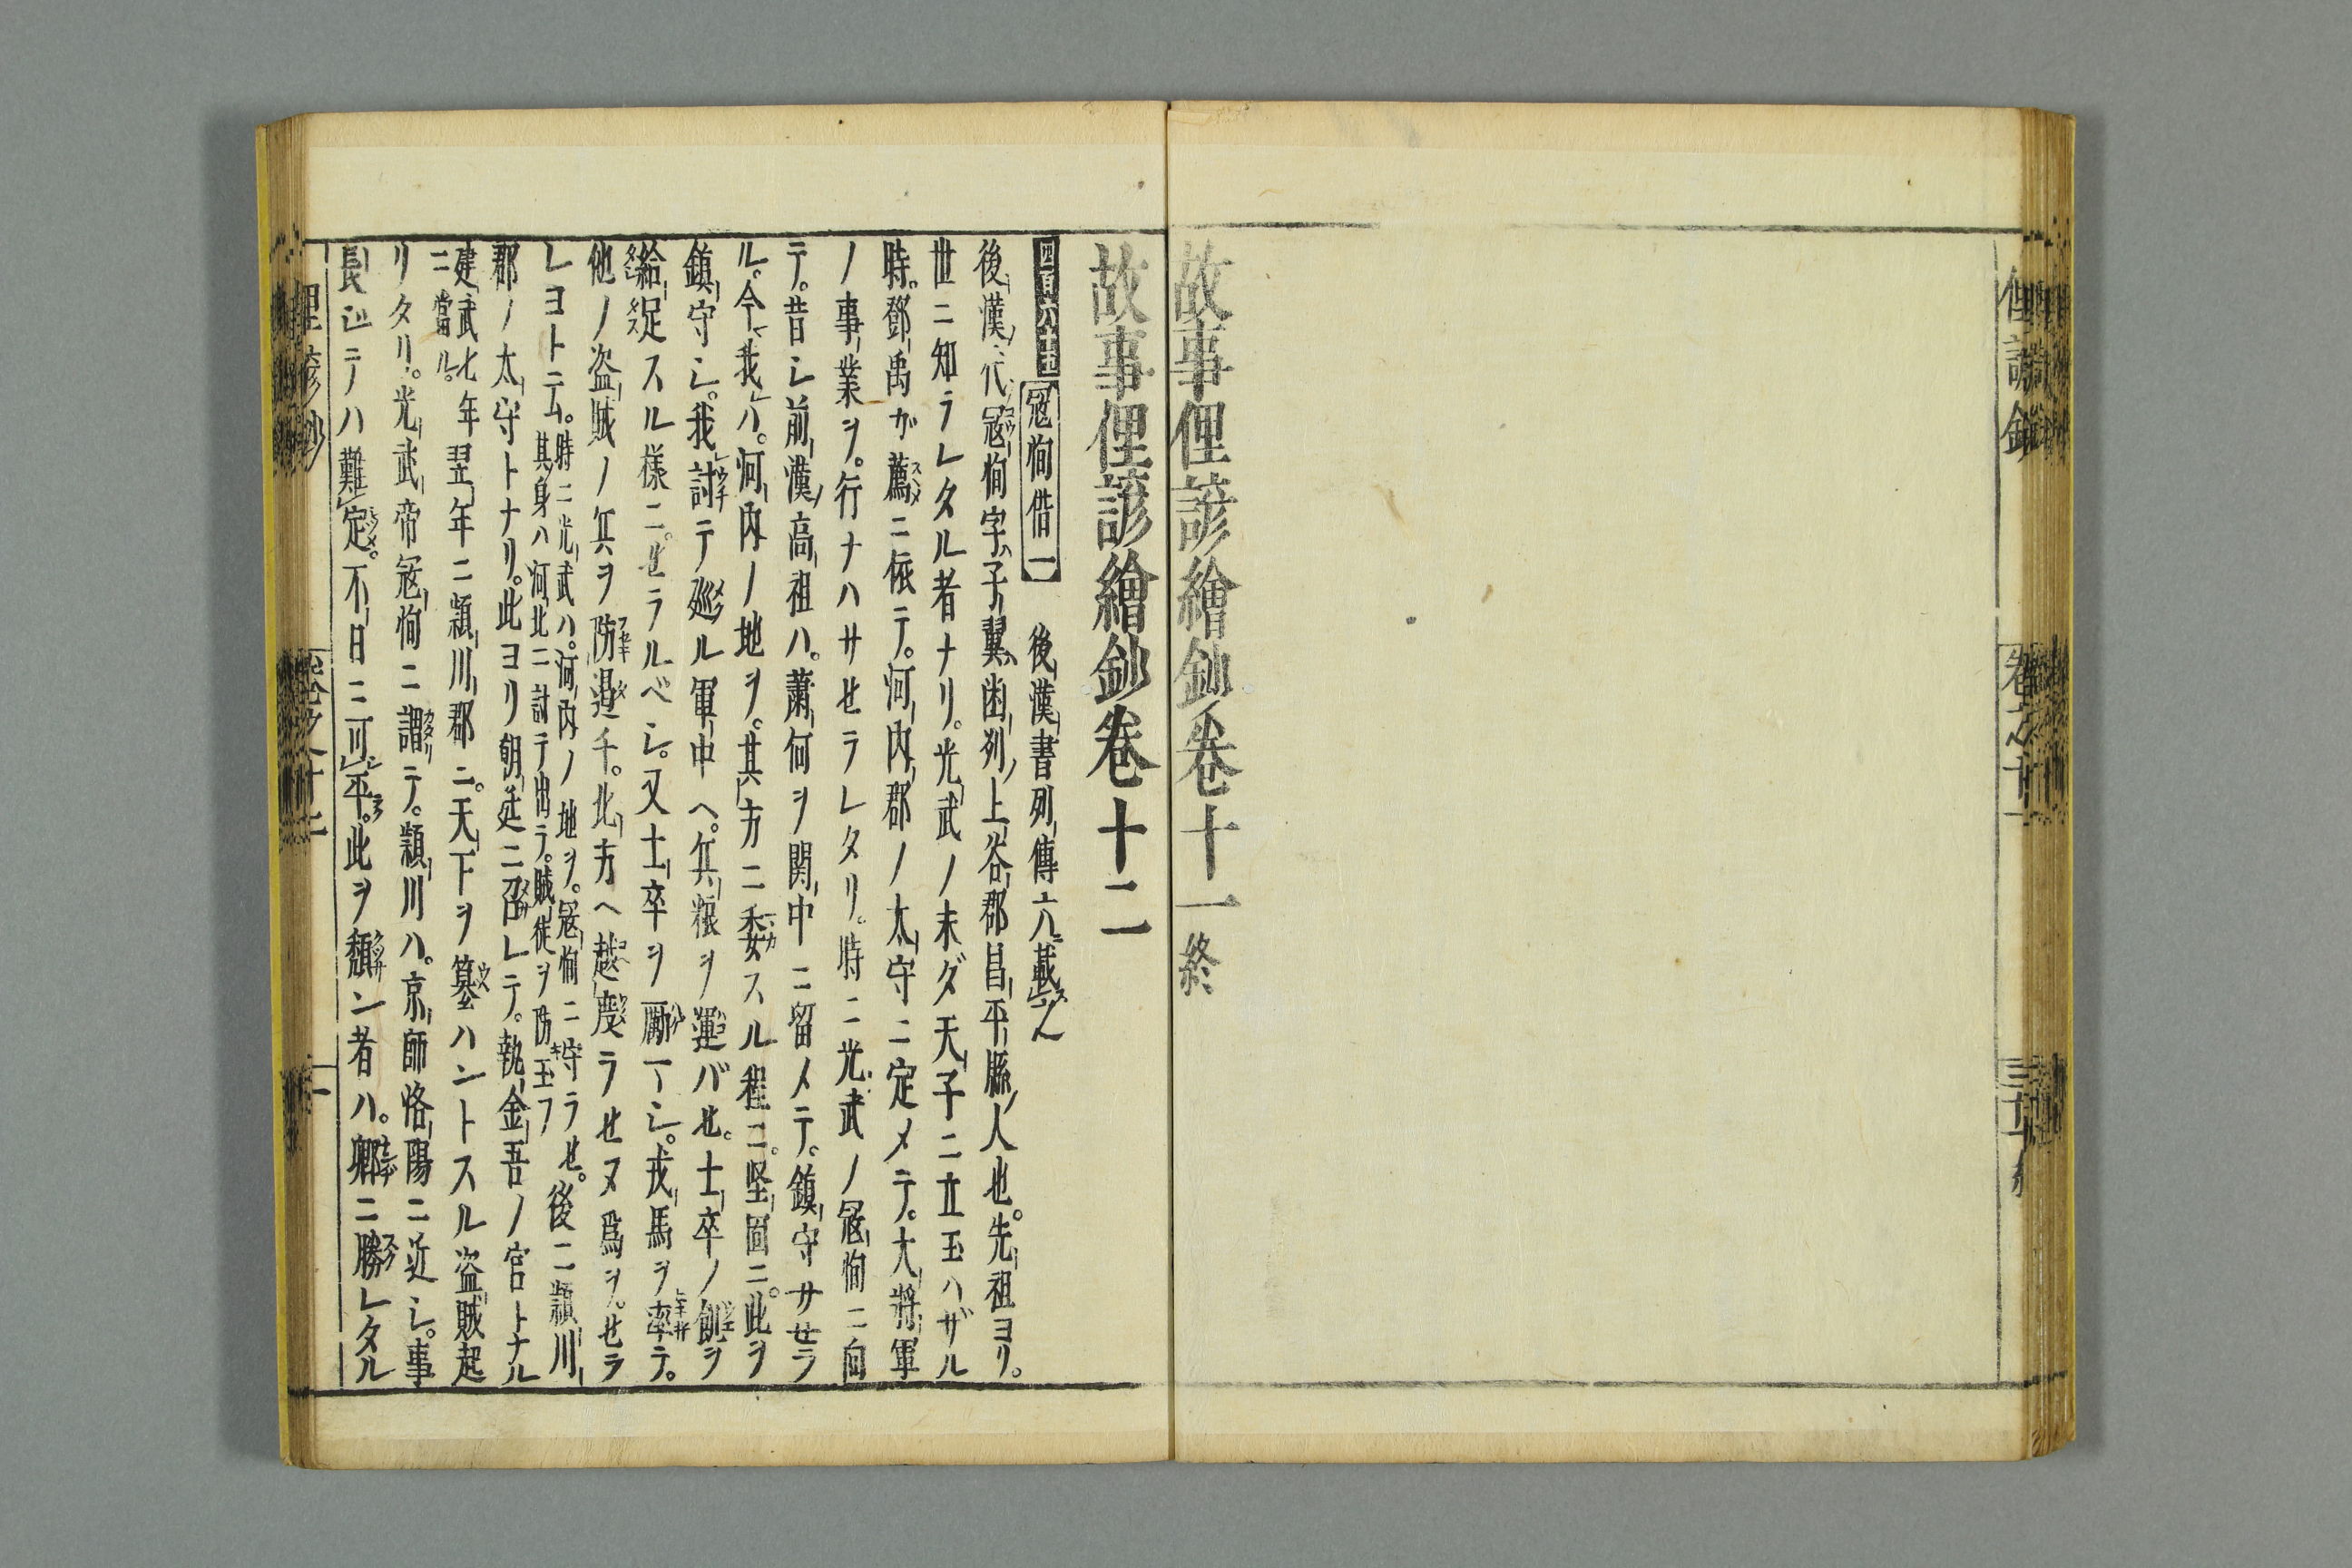 故事俚諺繪鈔卷十一終
故事俚諺繪鈔卷十二
四百六十五 冦恂借一 後漢書列傳六ニ載ス
後漢ノ代冦恂字ハ子翼ハ幽列ノ上谷郡昌平縣ノ人也。先祖ヨリ。
世ニ知ラレタル者ナリ。光武ノ末ダ天子ニ立玉ハザル
時。鄧禹ガ薦ニ依テ。河内郡ノ太守ニ定メテ。大將軍
ノ事業ヲ。行ナハサセラレタリ。時ニ光武ノ冦恂ニ向
テ。昔シ前漢ノ高祖ハ。蕭何ヲ関中ニ留メテ。鎮守サセラ
ル。今我ハ。河内ノ地ヲ。其方ニ委スル程ニ。堅固ニ。此ヲ
鎮守シ。我討テ廵ル軍中ヘ。兵粮ヲ運バセ。士卒ノ飢ヲ
給足スル様ニ。セラルベシ。又士卒ヲ勵マシ。戎馬ヲ率テ。
他ノ盗賊ノ兵ヲ防遏チ。北方ヘ越度ラセヌ爲ヲ。セラ
レヨトニム。時ニ光武ハ。河内ノ地ヲ。冦恂ニ守ラセ。其身ハ河北ニ討テ出ラ。賊徒ヲ防玉フ 後ニ潁川
郡ノ太守トナリ。此ヨリ朝廷ニ召レテ。執金吾ノ官トナル
建武七年翌年ニ潁川郡ニ。天下ヲ簒ハントスル盗賊起
ニ當ル。
リタリ。光武帝冦恂ニ謂テ。潁川ハ。京師洛陽ニ近シ。事
長ジテハ難定。不日ニ可平。此ヲ頽ン者ハ。卿ニ勝レタル
俚諺鈔 卷之十二 一